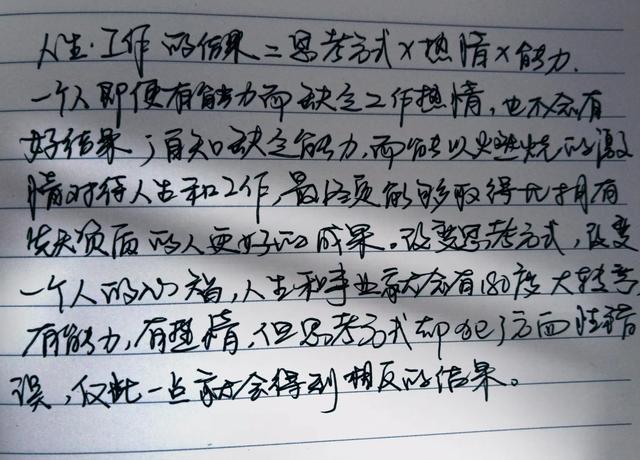 人生·工作的结果=思考方式×热情×能力.
一个人即便有能力而缺乏工作热情,也不会有
好结果;自知缺乏能力,而能以火燃烧的激
情对待人生和工作,最终须能够取得比拥有
先天资质的人更好的成果。改变思考方式,改变
一个人的心智,人生和事业就会有180度大转弯,
有能力,有热情,但思考方式却犯了方面性错
误,仅此一点就会得到相反的结果。